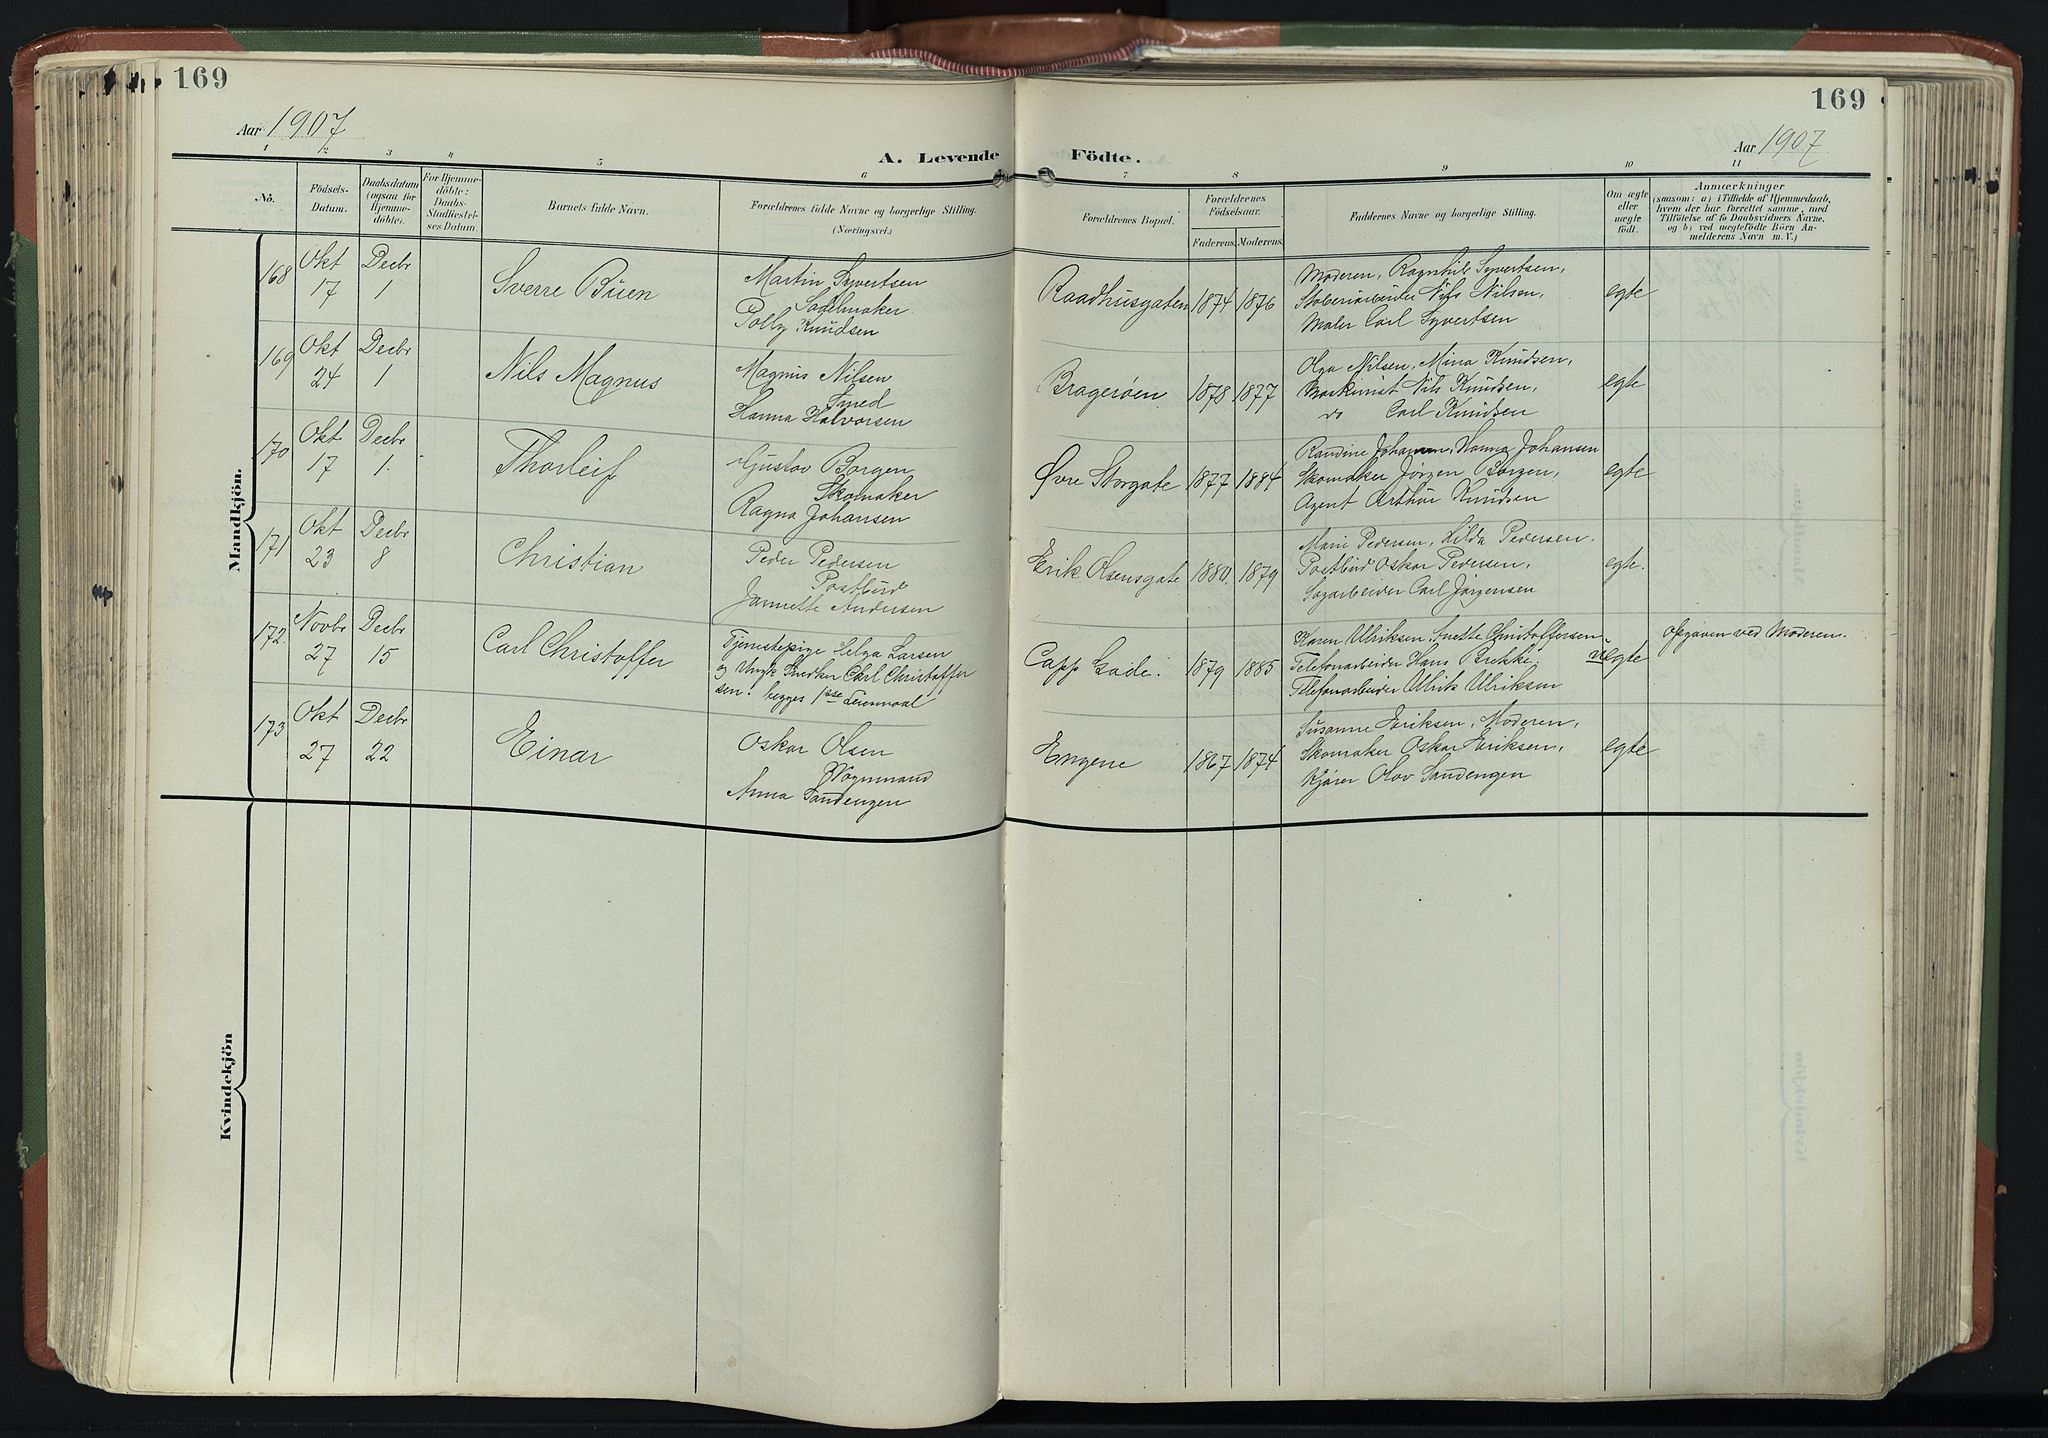 169
169
Aar 1907
A. Levende Födte.
Aar 1907
1 2 3 4 5 6 7 8 9 10 11
No.
Födsels-Datum.
Daabsdatum (ogsaa for Hjemmedöbte).
For Hjemmedöbte: Daabs-Stadfæstelses Datum.
Barnets fulde Navn.
Forældrenes fulde Navne og borgerlige Stilling.
(Næringsvei.)
Forældrenes Bopæl.
Forældrenes Födselsaar.
Faderens. Moderens.
Faddernes Navne og borgerlige Stilling.
Om ægte eller uægte født.
Anmærkninger
(saasom: a) i Tilfælde af Hjemmedaab,
hvem der har forrettet samme, med
Tilföielse af to Daabsvidners Navne,
og b) ved uægtefödte Börn An-
melderens Navn m. V.)
Mandkjön.
168 Okt 17 Decbr 1 Sverre Büen
Martin Syvertsen
Sadelmaker
Polly Knudsen
Raadhusgaten 1874 1876
Moderen, Ragnhild Syvertsen,
Nils Nilsen,
Maler Carl Syvertsen
egte
169 Okt 24 Decbr 1 Nils Magnus
Magnus Nilsen
Smed
Hanna Halvorsen
Bragerøen 1878 1877
Olga Nilsen, Mina Knudsen,
Maskinist Nils Knudsen,
do Carl Knudsen
egte
170 Okt 17 Decbr 1. Thorleif
Gustav Borgen
Skomaker
Ragna Johansen
Øvre Storgate 1877 1884
Randine Johansen, Hanna Johansen
Skomaker Jørgen Borgen,
Agent Arthur Knudsen
egte
171 Okt 23 Decbr 8 Christian
Peder Pedersen
Postbud
Jannette Andersen
Erik Olsensgate 1880. 1879
Marie Pedersen, Hilda Pedersen.
Postbud Oskar Pedersen,
Sagarbeider Carl Jørgensen
egte.
172. Novbr 27 Decbr 15 Carl Christoffer
Tjenestepige Helga Larsen
og Ungk Snedker Carl Christoffer
sen. begges 1ste Leiermaal
Capp. Gade. 1879 1885
Karen Ulriksen, Anette Christoffersen
Telefonarbeider Hans Brekke.
Telefonarbeider Ulrik Ulriksen
uegte
Opgiven ved Moderen.
173 Okt 27 Decbr 22 Einar
Oskar Olsen
Vognmand
Anna Sandengen
Engene 1867 1874
Susanne Eriksen, Moderen,
Skomaker Oskar Eriksen,
Kjører Olav Sandengen
egte
Kvindekjön